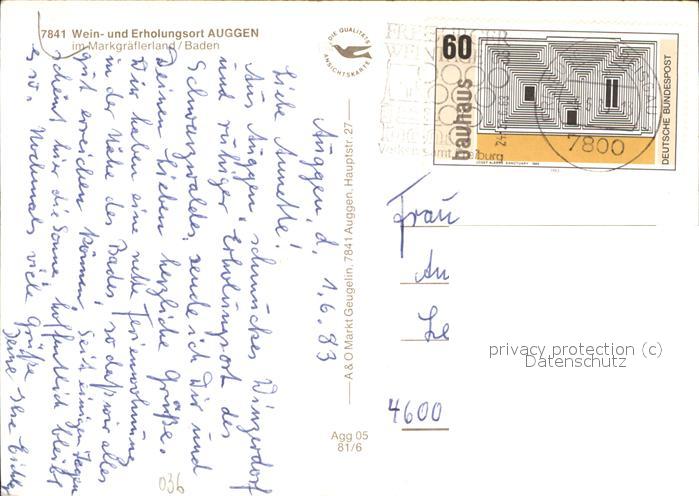 7841 Wein- und Erholungsort AUGGEN
im Markgräflerland / Baden
DIE QUALITÄTS
ANSICHTSKARTE
Auggen, d. 1.6.83
Liebe Annette!
Aus Auggen, schmuckes Winzerdorf
und ruhiger Erholungsort des
Schwarzwaldes, sende ich Dir und
Deinen Lieben herzliche Grüße.
Wir haben eine nette Ferienwohnung
in der Nähe des Bades, so daß wir alles
gut erreichen können. Seit einigen Tagen
scheint hier die Sonne, hoffentlich bleibt
es so. Nochmals viele Grüße
Deine
A & O Markt Geugelin, 7841 Auggen, Hauptstr. 27
Agg 05
81/6
036
60
bauhaus
DEUTSCHE BUNDESPOST
JOSEF ALBERS SANCTUARY 1942
1983
FREIBURGER
WEIN
Verkehrsamt Freiburg
7800
Frau
An
Le
4600
privacy protection (c)
Datenschutz